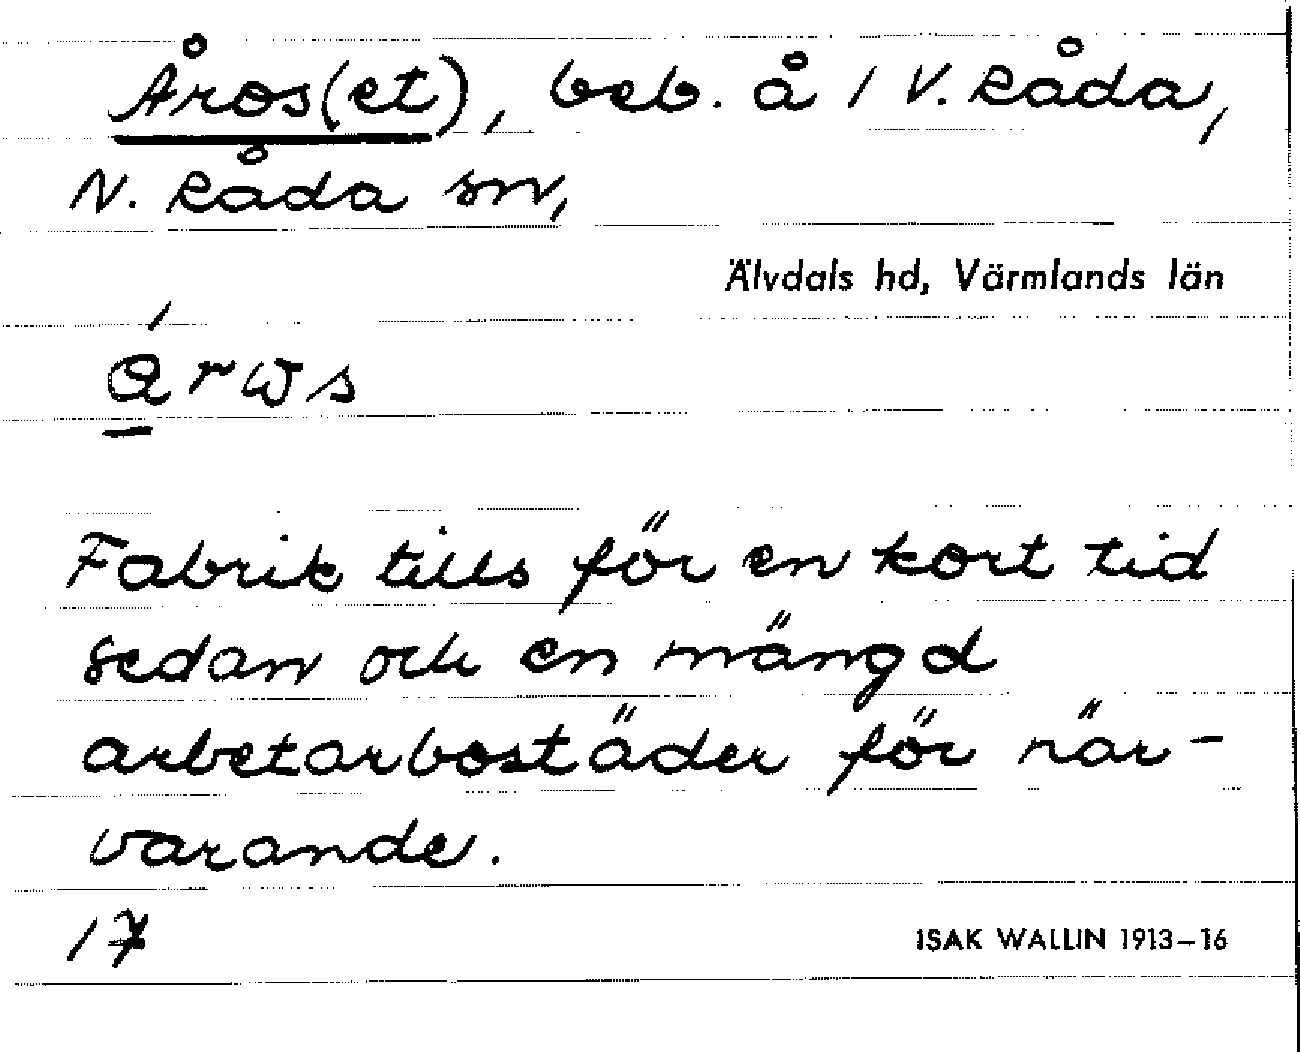 Åros(et), beb. å 1 V. Råda,
N. Råda sn,
Älvdals hd, Värmlands län
Fabrik tills för en kort tid
sedan och en mängd
arbetarbostäder för när-
varande.
17
ISAK WALLIN 1913–16